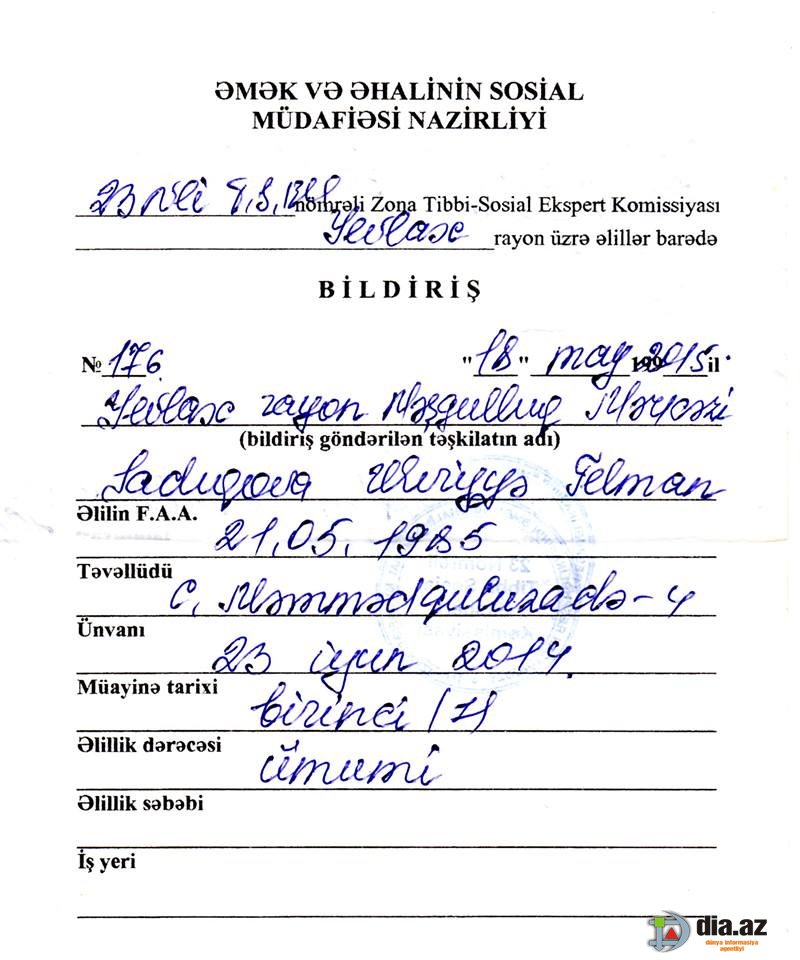 ƏMƏK VƏ ƏHALİNİN SOSİAL
MÜDAFİƏSİ NAZİRLİYİ
23 №li T.S. nömrəli Zona Tibbi-Sosial Ekspert Komissiyası
Yevlax rayon üzrə əlillər barədə
BİLDİRİŞ
№ 176 "18" may 199 2015 il
Yevlax rayon Məşğulluq Mərkəzi
(bildiriş göndərilən təşkilatın adı)
Sadıqova Ülviyyə Telman
Əlilin F.A.A.
21.05.1985
Təvəllüdü
C. Məmmədquluzadə-4
Ünvanı
23 iyun 2014
Müayinə tarixi
birinci (I)
Əlillik dərəcəsi
ümumi
Əlillik səbəbi
İş yeri
dia.az
dünya informasiya
agentliyi